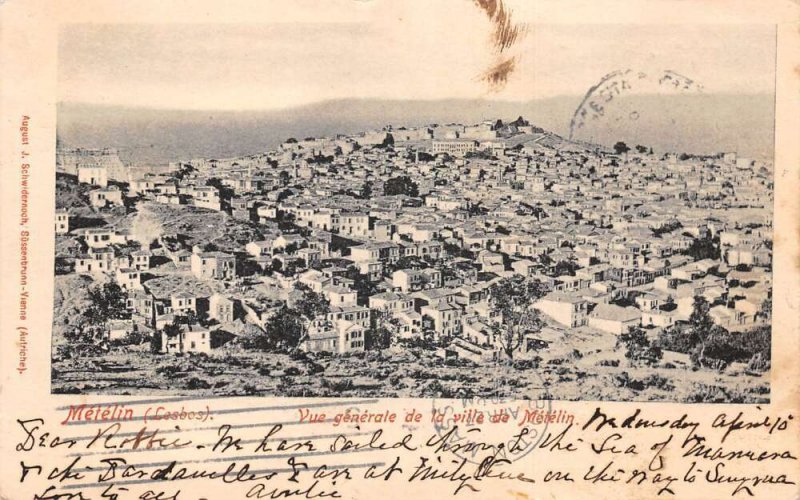 August J. Schwidernoch, Süssenbrunn-Vienne (Autriche).
Mételin (Lesbos). Vue générale de la ville de Mételin.
Wednesday April 10
Dear Robbie - We have sailed through the Sea of Marmora
& the Dardanelles & are at on the way to Smyrna
to all